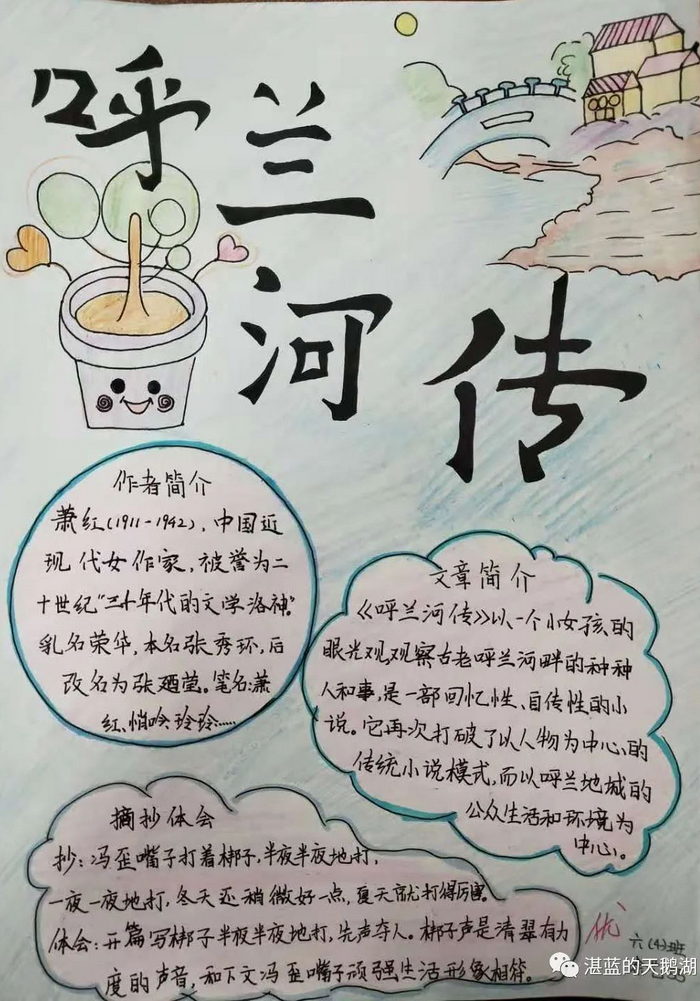 呼兰
河传
作者简介
萧红(1911-1942),中国近
现代女作家,被誉为二
十世纪"三十年代的文学洛神"。
乳名荣华,本名张秀环,后
改名为张廼莹。笔名:萧
红、悄吟、玲玲……
文章简介
《呼兰河传》以一个小女孩的
眼光观观察古老呼兰河畔的种种
人和事,是一部回忆性、自传性的小
说。它再次打破了以人物为中心的
传统小说模式,而以呼兰地城的
公众生活和环境为
中心。
摘抄体会
抄:冯歪嘴子打着梆子,半夜半夜地打,
一夜一夜地打,冬天还稍微好一点,夏天就打得厉害。
体会:开篇写梆子半夜半夜地打,先声夺人。梆子声是清翠有力
度的声音,和下文冯歪嘴子顽强生活形象相符。
优
六(4)班
湛蓝的天鹅湖